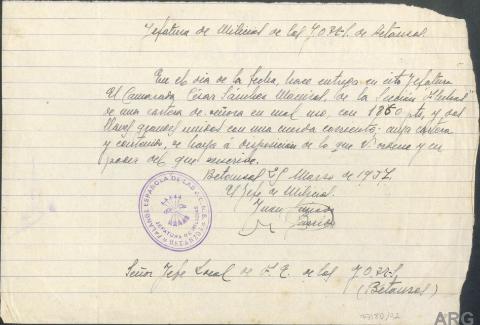 Jefatura de Milicias de las J.O.N.S. de Betanzos.
En el dia de la fecha, hace entrega en esta Jefatura
El Camarada, César Sánchez de la Sección
de una cartera de señora en mal uso, con 1850 pts, y dos
llaves grandes unidas con una cuerda corriente, cuya cartera
y contenido, se halla á disposición de lo que V. ordene y en
poder del que suscribe.
Betanzos 29 Marzo de 1937.
El Jefe de Milicias.
Juan
FALANGE ESPAÑOLA DE LAS J.O.N.S.
JEFATURA DE MILICIAS
BETANZOS
Señor Jefe Local de F. E. de las J.O.N.S.
(Betanzos)
ARG